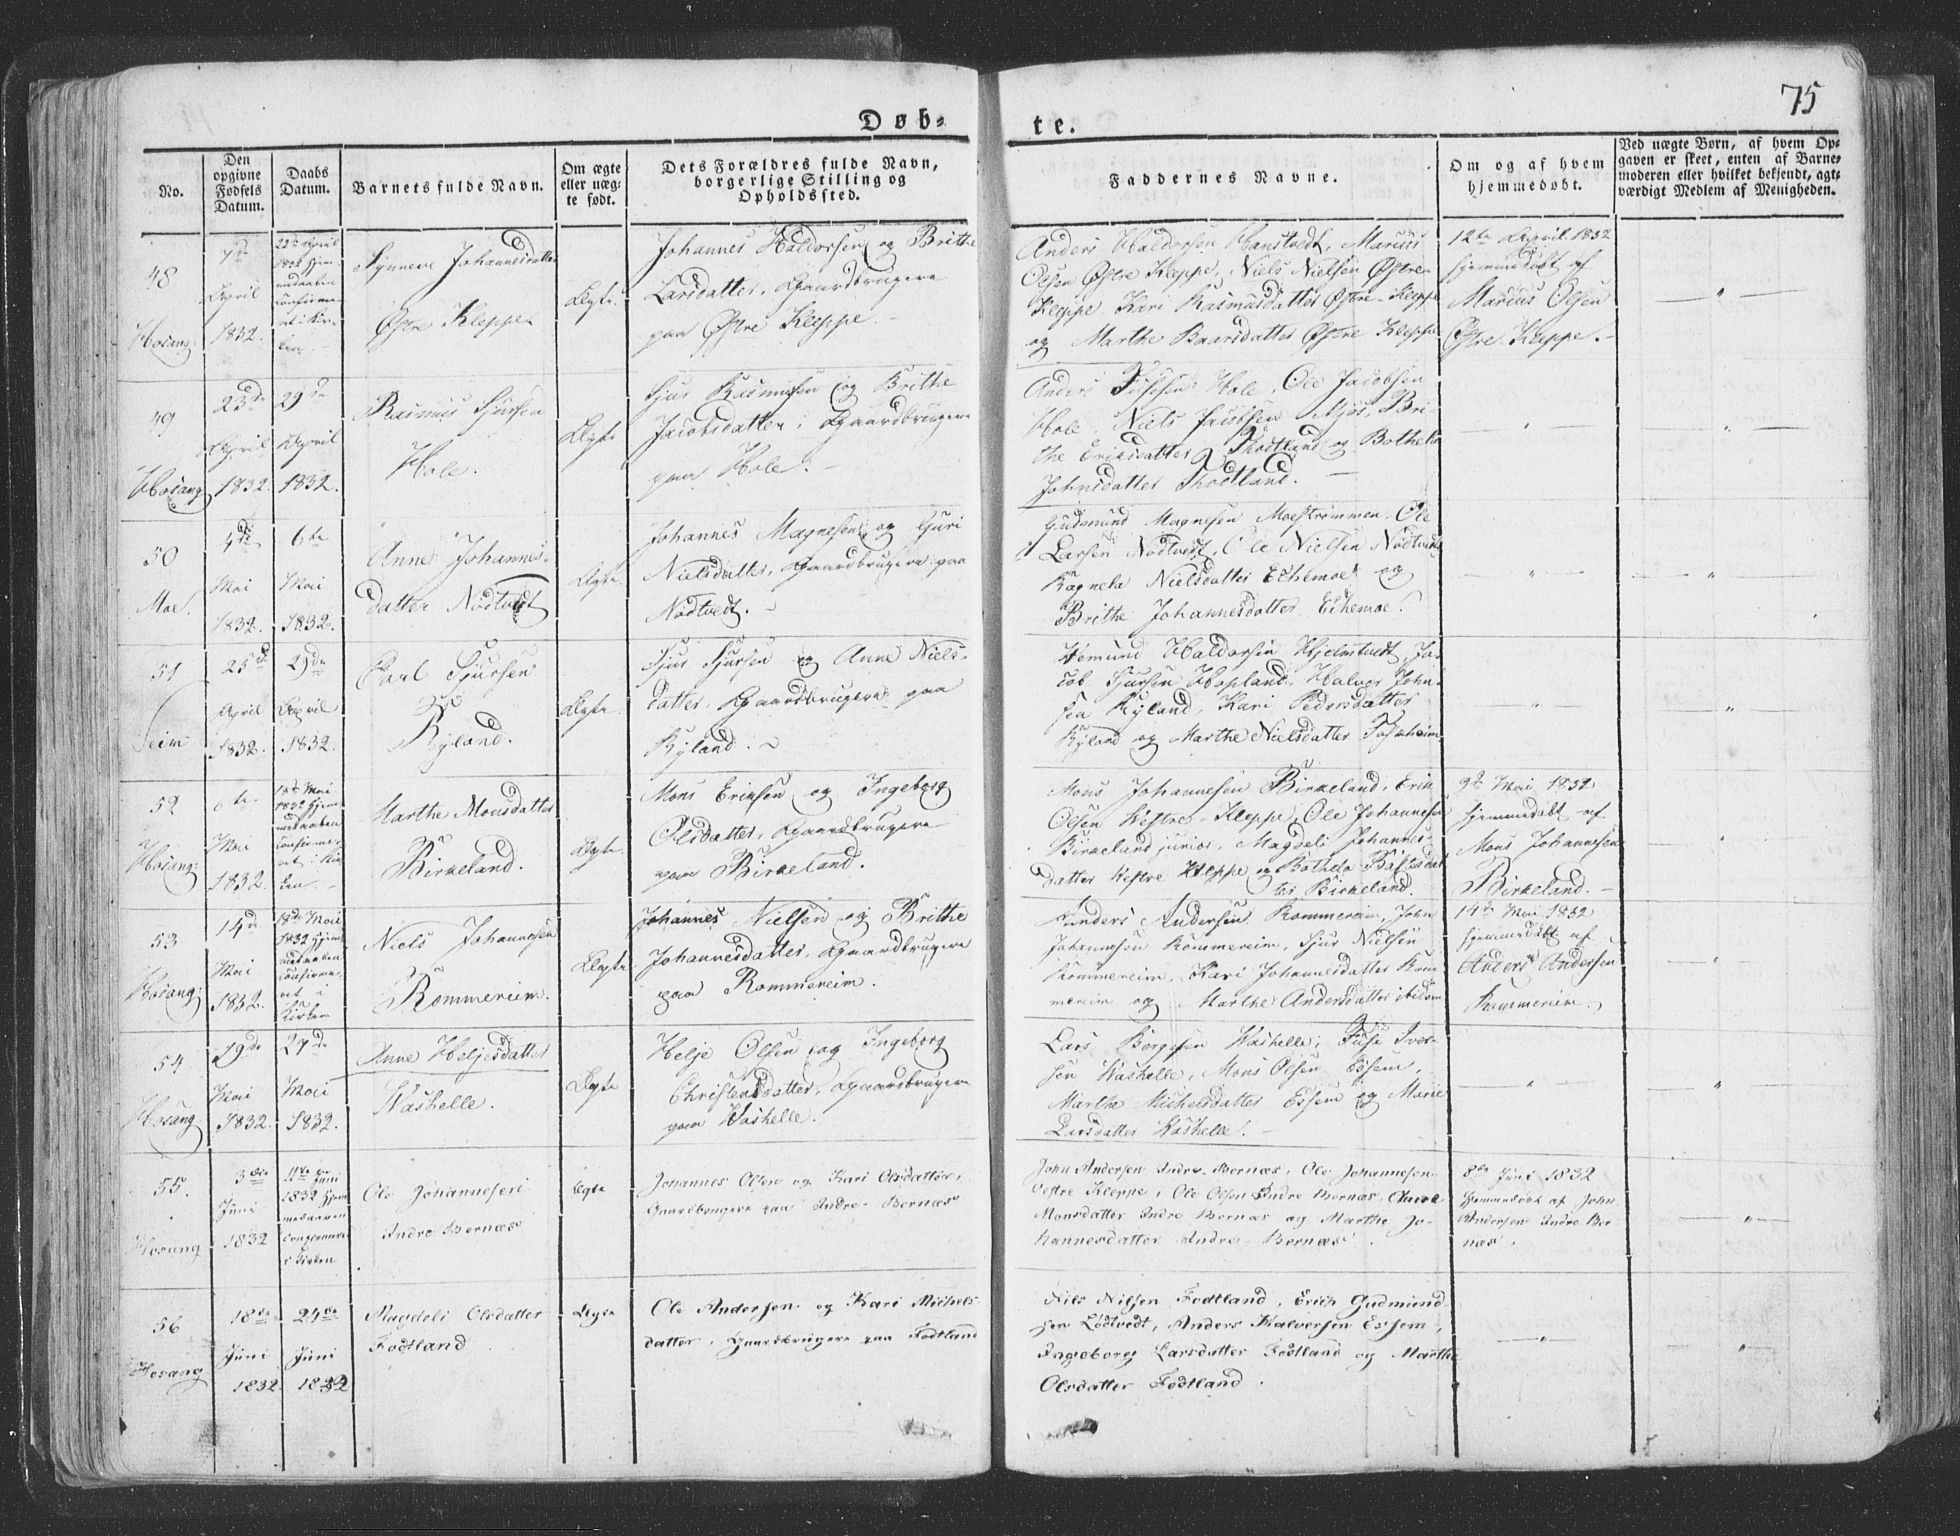 Døb-
te.
75
No.
Den opgivne Fødsels Datum.
Daabs Datum.
Barnets fulde Navn.
Om ægte eller uæg-te født.
Dets Forældres fulde Navn, borgerlige Stilling og Opholdssted.
Faddernes Navne.
Om og af hvem hjemmedøbt.
Ved uægte Børn, af hvem Op-gaven er skeet, enten af Barne-moderen eller hvilket bekjendt, agt-værdigt Medlem af Menigheden.
48
Hosang:
7de
April
1832.
22de April
1832 hjem-
medaaben
confirme-
ret i Kir-
ken. -
Synneve Johannesdatter
Østre Kleppe.
Ægte.
Johannes Haldorsen og Brithe
Larsdatter, Gaardbrugere
paa Østre Kleppe. -
Anders Haldorsen Hanstvedt, Marius
Olsen Østre Kleppe, Niels Nielsen Østre-
Kleppe, Kari Rasmusdatter Østre-Kleppe
og Marthe Baarsdatter Østre Kleppe
12te April 1832
hjemmedøbt af
Marius Olsen
Østre-Kleppe. -
— " —
49
Hosang:
23de
April
1832.
29de
April
1832.
Rasmus Sjursen
Hole.
Ægte.
Sjur Rasmussen og Brithe
Jacobsdatter, Gaardbrugere
paa Hole. -
Anders Hole, Ole Jacobsen
Hole, Niels Jacobsen Mjøs, Bri-
the Eriksdatter Skodtland og Bothele
Johnsdatter Skodtland. —
— " —
— " —
50
Moe.
4de
Mai
1832.
6te
Mai
1832.
Anne Johannes-
datter Nødtvedt
Ægte.
Johannes Magnesen og Guri
Nielsdatter, Gaardbrugere paa
Nødtvedt. -
Gudmund Magnesen Moestrømmen, Ole
Larsen Nødtvedt, Ole Nielsen Nødtvedt
Ragnela Nielsdatter Echemoe og
Brithe Johannesdatter Echemoe.
— " —
— " —
51
Seim
25de
April
1832.
29de
April
1832.
Carl Sjursen
Ryland.
Ægte.
Sjur Sjursen og Anne Niels-
datter, Gaardbrugere paa
Ryland. -
Vemund Haldorsen Hjelmtvedt, Ja-
cob Sjursen Hopland, Halvor John-
sen Ryland, Kari Pedersdatter
Ryland og Marthe Nielsdatter
— " —
— " —
52
Hosang:
6te
Mai
1832.
13de Mai
1832 hjem-
medaaben
confirme-
ret i Kir-
ken. -
Marthe Monsdatter
Birkeland.
Ægte.
Mons Eriksen og Ingeborg
Olsdatter, Gaardbrugere
paa Birkeland.
Mons Johannesen Birkeland, Erik
Olsen Vestre-Kleppe, Ole Johannesen
Birkeland junior, Magdeli Johannes-
datter Vestre Kleppe og Bothele
ter Birkeland.
9de Mai 1832
hjemmedøbt af
Mons Johannesen
Birkeland. -
— " —
53
Hosang:
14de
Mai
1832.
Mai
1832 hjem-
medaaben
confirme-
ret i
Kirken
Niels Johannesen
Rommereim.
Ægte
Johannes Nielsen og Brithe
Johannesdatter, Gaardbrugere
paa Rommereim.
Anders Andersen Rommereim, John
Johannesen Rommereim, Sjur Nielsen
Rommereim, Kari Johannesdatter Rom-
mereim og Marthe Andersdatter ibidem
14de Mai 1832
hjemmedøbt af
Anders Andersen
Rommereim.
— " —
54
Hosang
19de
Mai
1832.
27de
Mai
1832.
Anne Heljesdatter
Vashelle.
Ægte
Helje Olsen og Ingeborg
Christensdatter, Gaardbrugere
paa Vashelle.
Lars Bergesen Vashelle, Iver-
sen Vashelle, Mons Olsen Essem,
Marthe Michelsdatter Essem og Marie
Larsdatter Vashelle. -
— " —
— " —
55.
Hosang
3die
Juni
1832
11te
Juni
1832 hjem-
medaaben
confirmeret
i Kirken
Ole Johannesen
Indre Bernæs
Ægte
Johannes Olsen og Kari Olsdatter,
Gaardbrugere paa Indre-Bernæs
John Andersen Indre-Bernæs, Ole Johannesen
Vestre Kleppe, Ole Olsen Indre Bernæs, Anne
Monsdatter Indre Bernæs og Marthe Jo-
hannesdatter Indre-Bernæs.
8de Juni 1832
hjemmedøbt af John
Andersen Indre Ber-
næs.
— " —
56
Hosang
18de
Juni
1832.
24de
Juni
1832
Magdeli Olsdatter
Fodtland
Ægte
Ole Andersen og Kari Michels-
datter, Gaardbrugere paa Fodtland
Nils Nilsen Fodtland, Erich Gudmund-
sen Lødtvedt, Anders Halversen Essem,
Ingeborg Larsdatter Fodtland og Marthe
Olsdatter Fodtland.
— " —
— " —